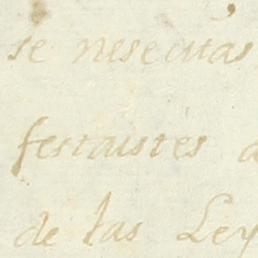 se nesecitas
festaistes a
de las Ley